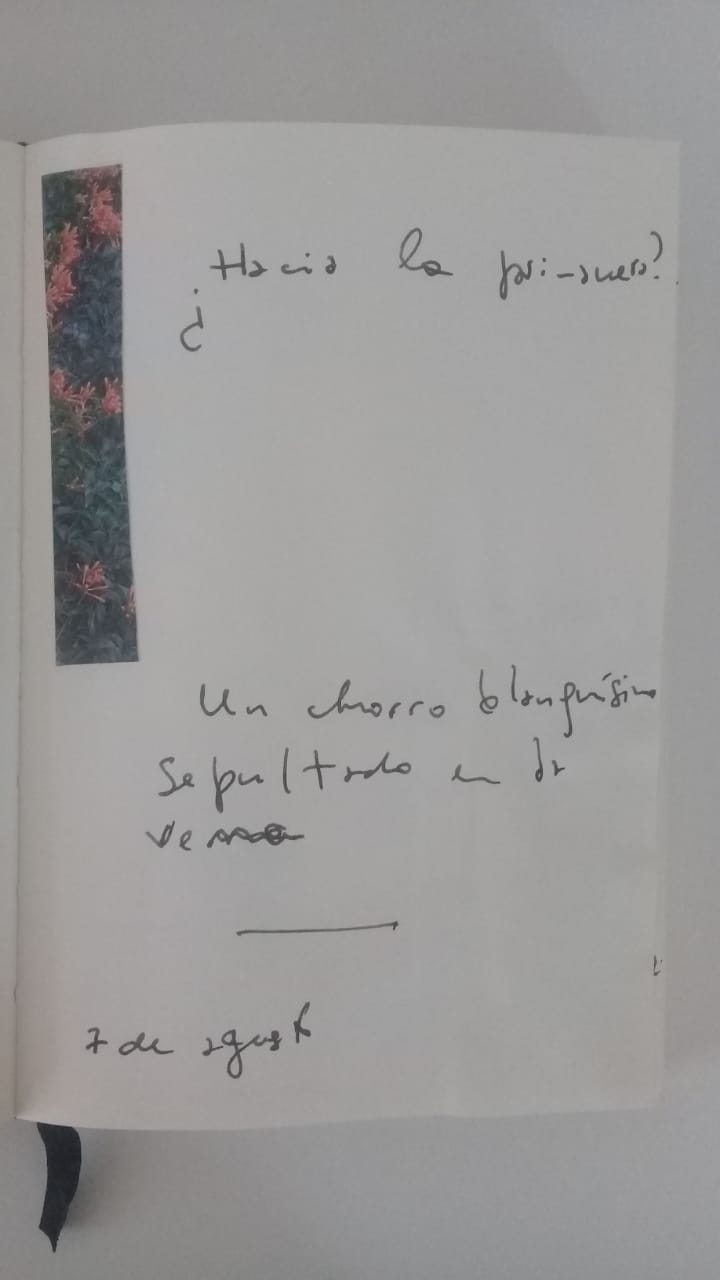 ¿Hacia la primavera?
Un chorro blanquísimo
sepultado en la
7 de agosto